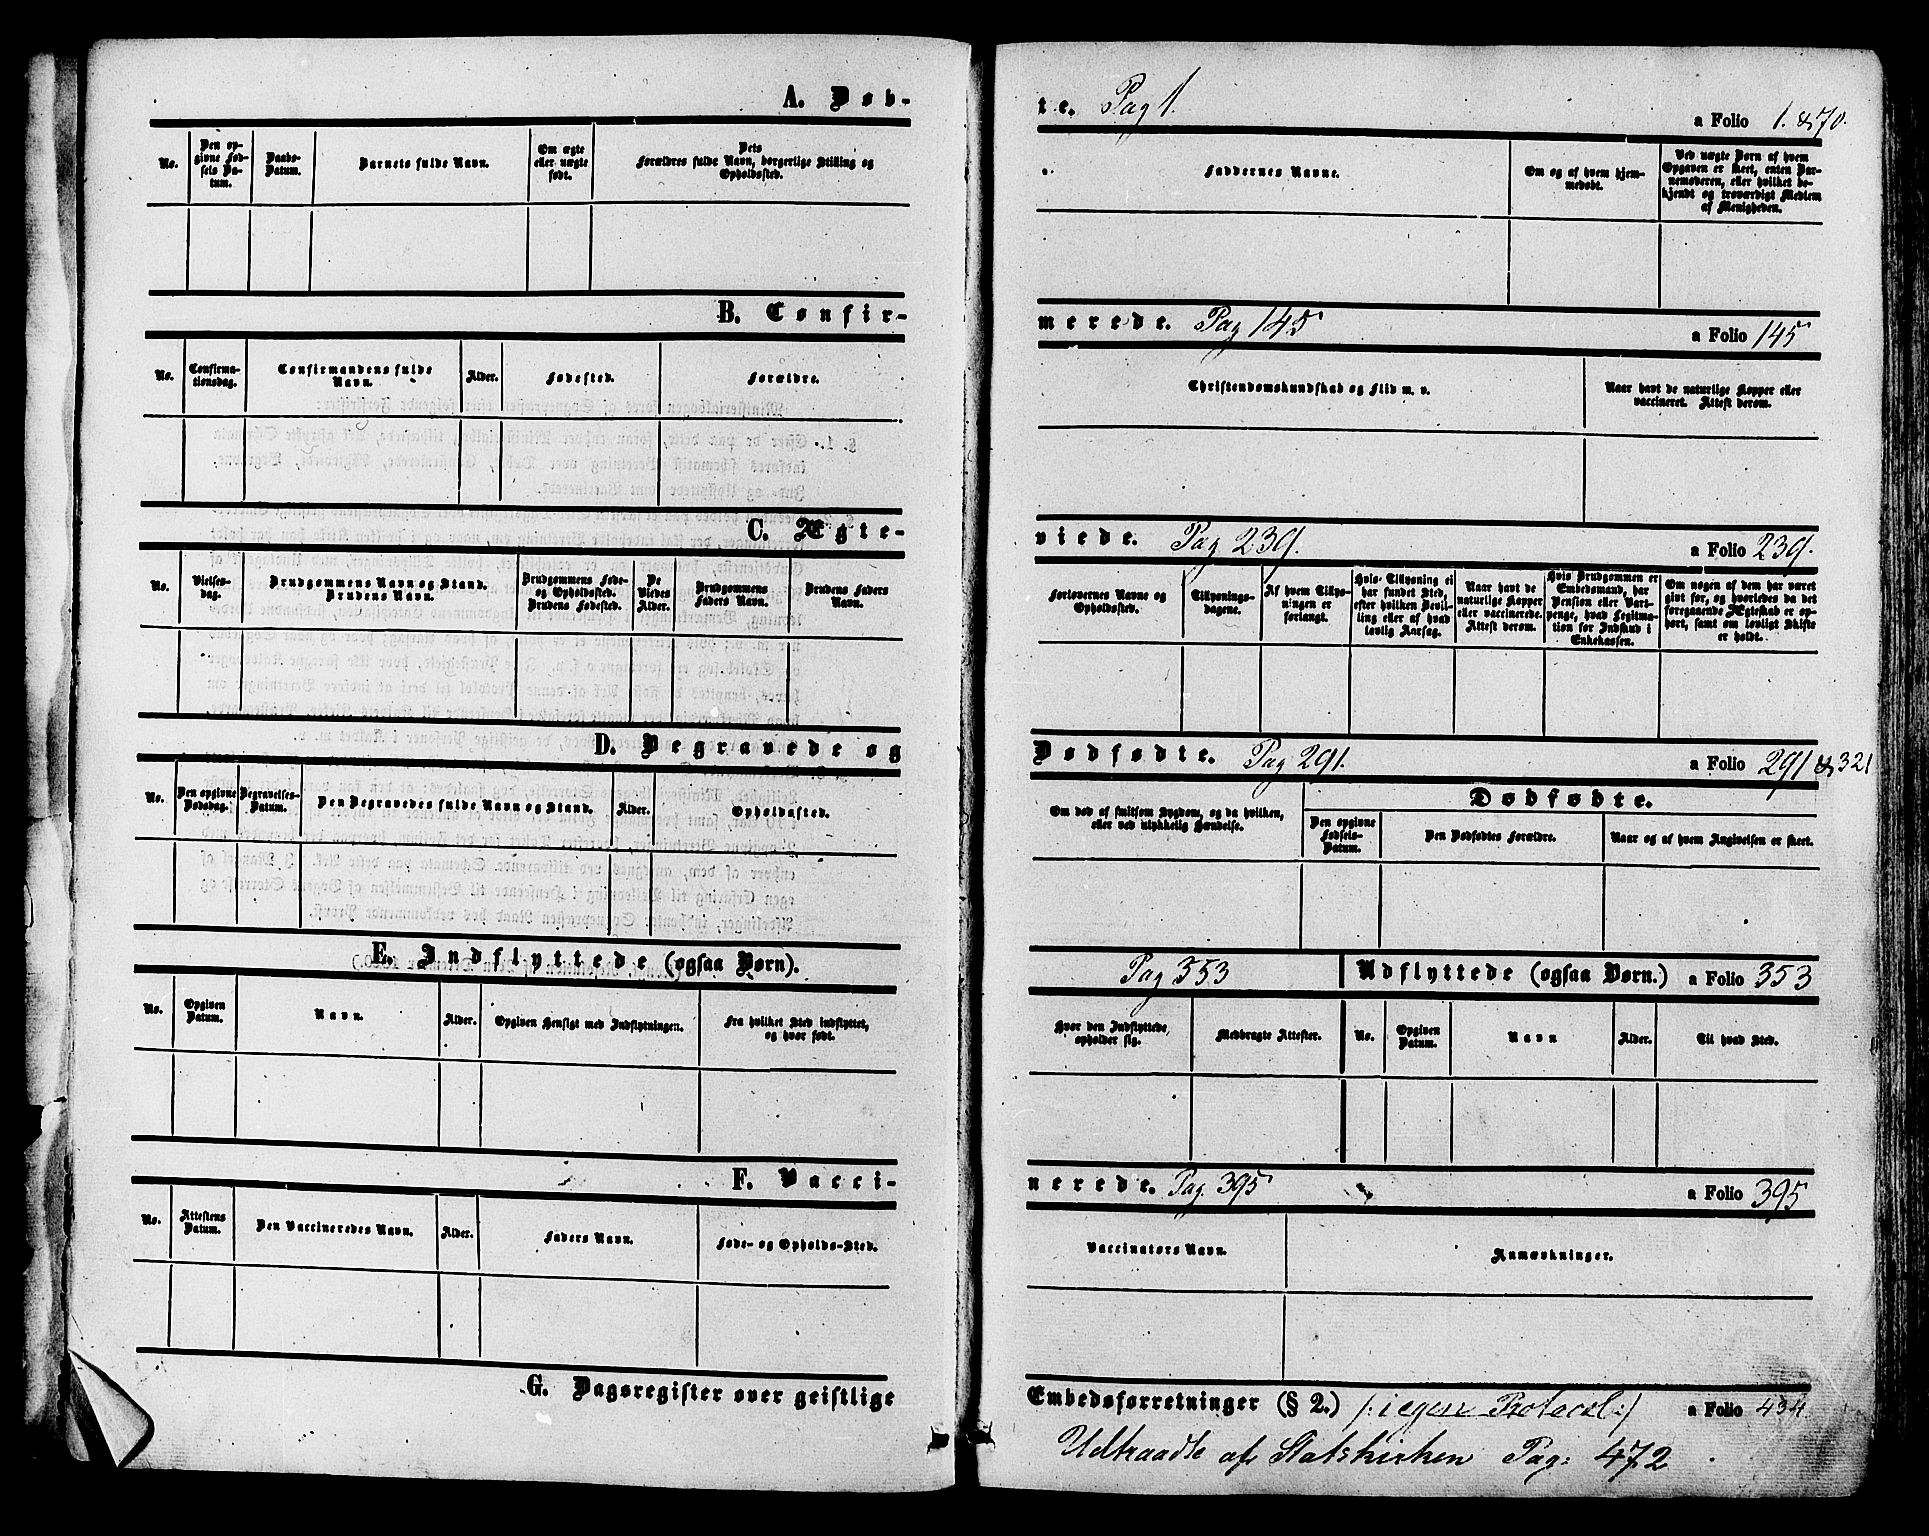 A. Døb-
No.
Den op-
givne Fød-
sels Da-
tum.
Daabs-
Datum.
Barnets fulde Navn.
Om ægte
eller uægte
født.
Dets
Forældres fulde Navn, borgerlige Stilling og
Opholdssted.
B. Confir-
No.
Confirma-
tionsdag.
Confirmandens fulde
Navn.
Alder.
Fødested.
Forældre.
C. Ægte-
No.
Vielses-
dag.
Brudgommens Navn og Stand.
Brudens Navn.
Brudgommens Føde-
og Opholdssted.
Brudens Fødested.
De
Viedes
Alder.
Brudgommens
Faders Navn.
Brudens Faders
Navn.
D. Begravede og
No.
Den opgivne
Dødsdag.
Begravelses-
Datum.
Den Begravedes fulde Navn og Stand.
Alder.
Opholdssted.
E. Indflyttede (ogsaa Børn).
No.
Opgiven
Datum.
Navn.
Alder.
Opgiven Hensigt med Indflytningen.
Fra hvilket Sted indflyttet,
og hvor født.
F. Vacci-
No.
Attestens
Datum.
Den Vaccineredes Navn.
Alder.
Faders Navn.
Føde- og Opholds-Sted.
G. Dagsregister over geistlige
te. Pag 1.
a Folio 1. & 70.
Faddernes Navne.
Om og af hvem hjem-
medøbt.
Ved uægte Børn af hvem
Opgaven er skeet, enten Bar-
nemoderen, eller hvilket be-
kjendt og troværdigt Medlem
af Menigheden.
merede. Pag 145
a Folio 145
Christendomskundskab og Flid m. v.
Naar havt de naturlige Kopper eller
vaccineret. Attest derom.
viede. Pag 239.
a Folio 239.
Forlovernes Navne og
Opholdssted.
Tillysnings-
dagene.
Af hvem Tillys-
ningen er
forlangt.
Hvis Tillysning ei
har fundet Sted,
efter hvilken Bevil-
ling eller af hvad
lovlig Aarsag.
Naar havt de
naturlige Kopper
eller vaccinerede.
Attest derom.
Hvis Brudgommen er
Embedsmand, har
Pension eller Vart-
penge, hvad Legitima-
tion for Indskud i
Enkekassen.
Om nogen af dem har været
gift før, og hvorledes da det
foregaaende Ægteskab er op-
hørt, samt om lovligt Skifte
er holdt.
Dødfødte. Pag 291.
a Folio 291 & 321
Om død af smitsom Sygdom, og da hvilken,
eller ved ulykkelig Hændelse.
Dødfødte.
Den opgivne
Fødsels-
Datum.
Den Dødfødtes Forældre.
Naar og af hvem Angivelsen er skeet.
Pag 353
Udflyttede (ogsaa Børn.) a Folio 353
Hvor den Indflyttede,
opholder sig.
Medbragte Attester.
No.
Opgiven
Datum.
Navn
Alder.
Til hvad Sted.
nerede. Pag. 395
a Folio 395
Vaccinators Navn.
Anmærkninger.
Embedsforretninger (§ 2.) /: i egen Protocol :/ a Folio 434
Udtraadte af Statskirken Pag: 472